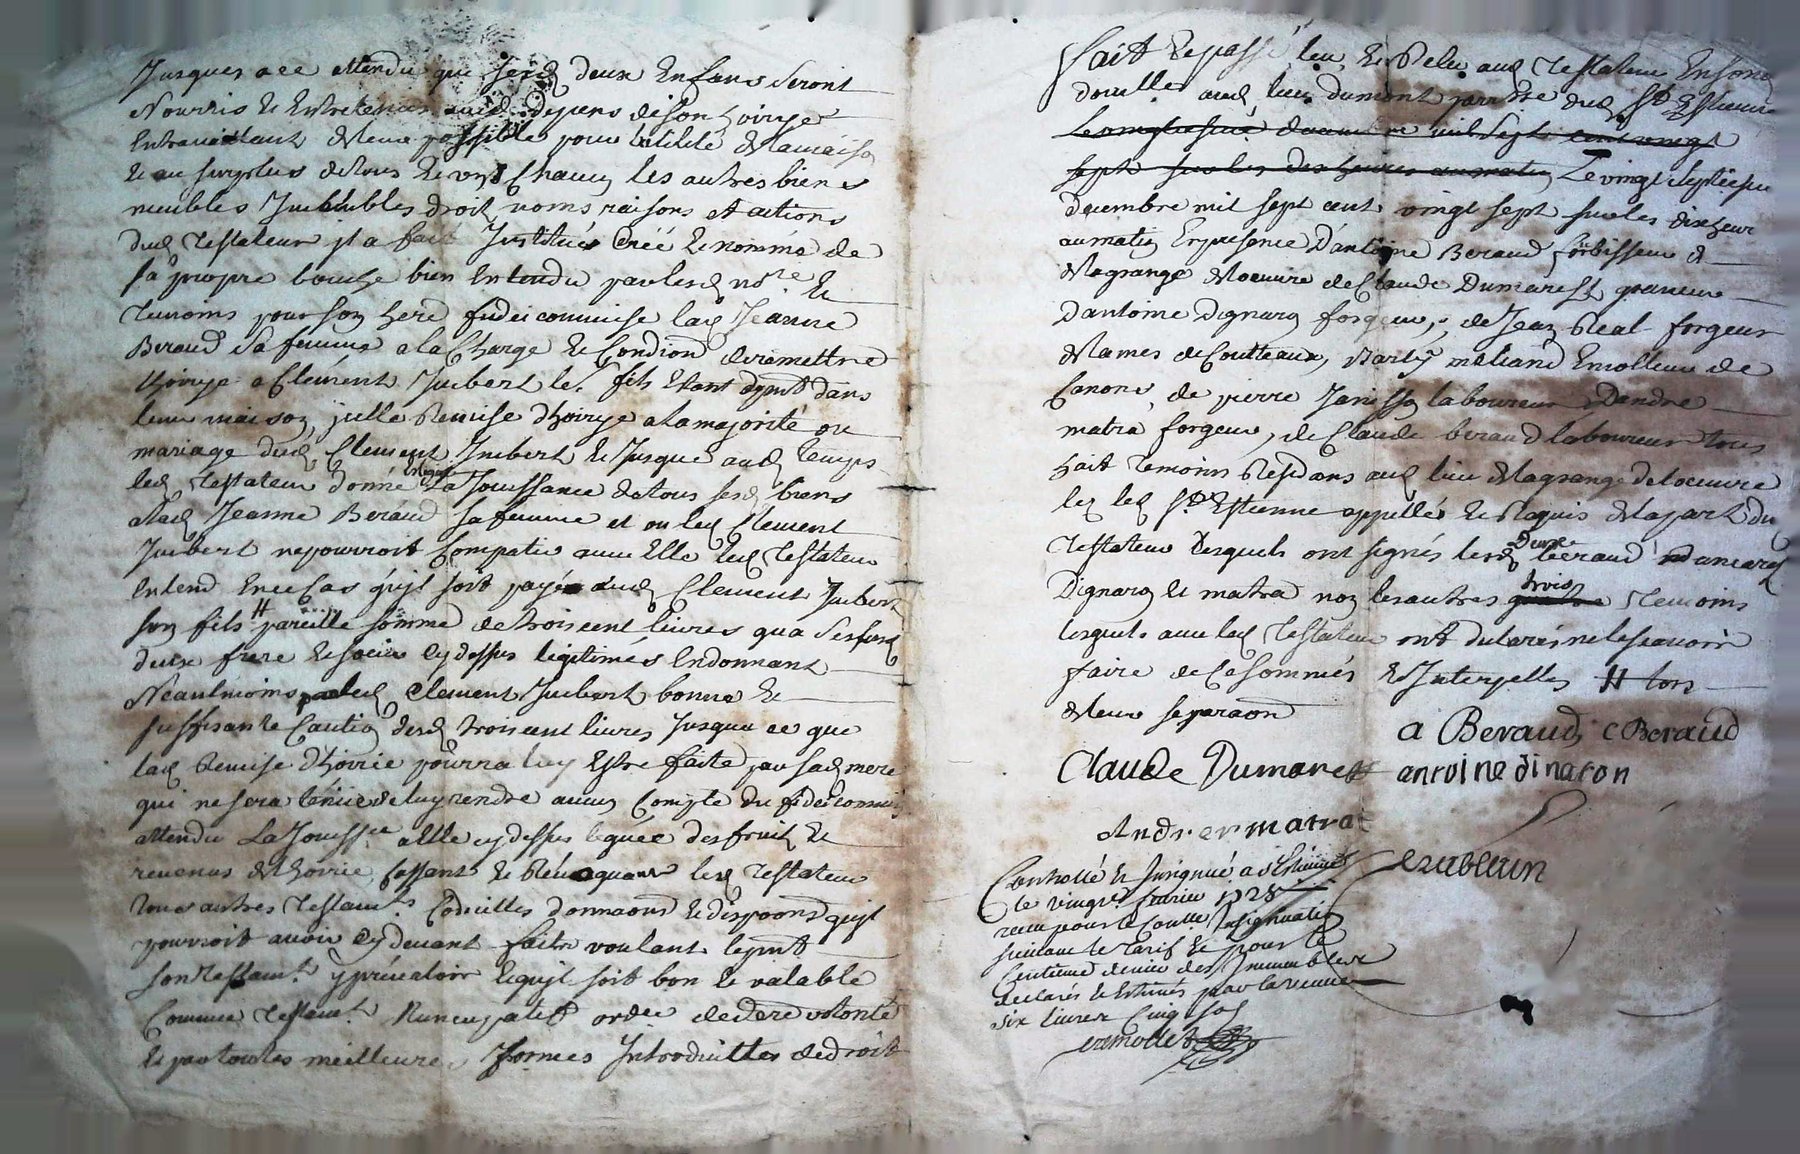 Jusques a ce attendu que sesd deux Enfans Seront
Nourris et Entretenus aux depens de son hoirye
En travaillant de leur possible pour lutilité de la maison
Et au surplus de tous Et uns Chacun les autres biens
meubles Jmeubles droits noms raisons et actions
dud testateur jl a fait Jnstitué Créé et nommé de
sa propre bouche bien Entendu par lesd nore et
temoins pour son here fideicommise lad Jeanne
Beraud sa femme a la Charge et Condion de remettre
lhoirye a Clement Jmbert le fils Etant dans
leur maison, jcelle Remise dhoirye a la majorité ou
mariage dud Clement Jmbert et Jusque aud temps
led testateur donne la Jouissance de tous sesd biens
a lad Jeanne Beraud sa femme et ou led Clement
Jmbert ne pourroit Compatir avec Elle led testateur
Entend En ce Cas qu'jl soit payé aud Clement Jmbert
son fils # pareille somme de trois cent livres qu'a sesd
deux frere et soeur cy dessus legitimés En donnant
Neantmoins par led Clement Jmbert bonne et
suffisante Caution desd trois cent livres Jusqua ce que
lad Remise dhoirie pourra luy Estre faite par sad mere
qui ne sera tenue de luy rendre aucun Compte du fideicommis
attendu La Jouissce a Elle cy dessus leguée des fruits et
revenus de lhoirie Cassant et Revoquant led testateur
tous autres testamts Codicilles donnaons et disposons qu'jl
pourroit avoir cy devant faits voulant le pnt
son testamt y prevaloir et qu'jl soit bon et valable
Comme testamt Nuncupatif ordre de dere volonté
et par toutes meilleures formes Jntroduittes de droit
Fait et passé, leu, et Releu aud testateur En son
domille aud lieu du mont parroisse dud St Estienne
sept sur les dix heures au matin Le vingt septieme
Decembre mil sept cent vingt sept sur les dix heure
au matin En presence D'antoine Beraud forbisseur de
Lagrange de Loeuvre de Claude Dumarest graveur
D'antoine Dignaron forgeur, de Jean Real forgeur
de lames de Coutteaux, meliand Emolleur de
Canons, de pierre Janisson laboureur, D'andre
matra forgeur, de Claude beraud laboureur tous
huit temoins Residans aud lieu de Lagrange de loeuvre
lez led St Estienne appellés et Requis de la part du
testateur Desquels ont signés lesd Deux Beraud
Dignaron et matra non les autres quatre trois temoins
lesquels avec led testateur ont declarés ne le scavoir
faire de Ce sommés et Jnterpellés # lors
de leur separaon
a Beraud c Beraud
Claude Dumarest antoine dinaron
Andre matra
Controllé et Jnsignué a St Etienne
le vingt fevrier 1728
receu pour le Conlle Jnsignuation
suivant le tarif et pour le
Centieme denier des Jmmeubles
declarés et Estimés par la veuve
six livres Cinq sols